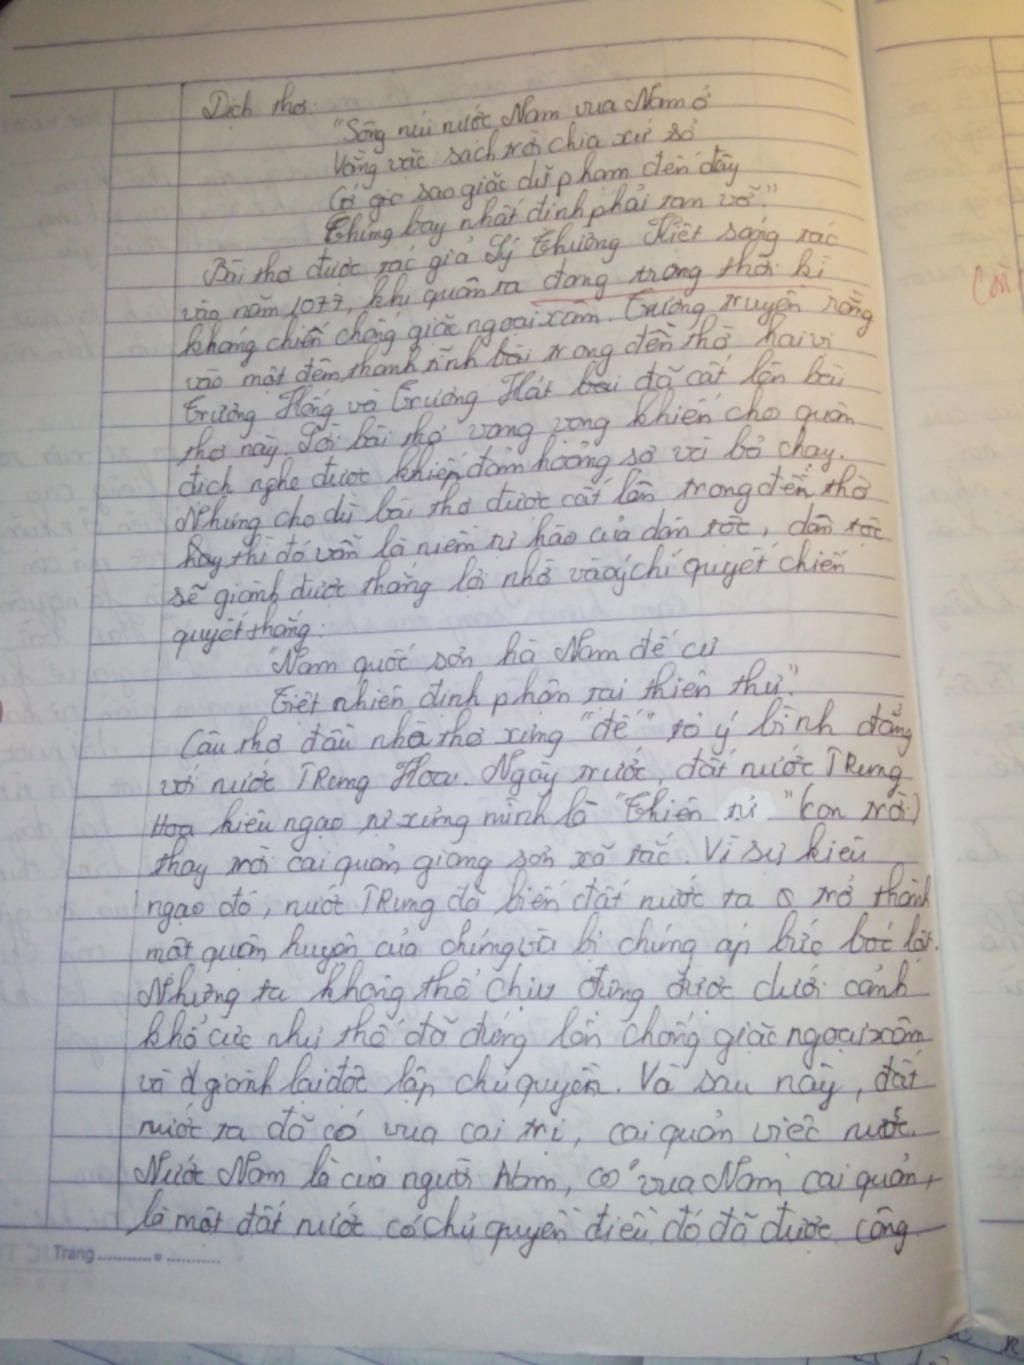 Dịch thơ:
"Sông núi nước Nam vua Nam ở
Vằng vặc sách trời chia xứ sở
Cớ gì sao giặc dữ phạm đến đây
Chúng bay nhất định phải tan vỡ."
Bài thơ được tác giả Lý Thường Kiệt sáng tác
vào năm 1077, khi quân ta đang trong thời kì
kháng chiến chống giặc ngoại xâm. Tương truyền rằng
vào một đêm thanh tĩnh bài trong đền thờ hai vị
Trương Hống và Trương Hát bài đã cất lên bài
thơ này. Lời bài thơ vang vọng khiến cho quân
địch nghe được khiến đảm hoảng sợ và bỏ chạy.
Nhưng cho dù bài thơ được cất lên trong đền thờ
hay thì đó vẫn là niềm tự hào của dân tộc, dân tộc
sẽ giành được thắng lợi nhờ vào ý chí quyết chiến
quyết thắng:
"Nam quốc sơn hà Nam đế cư
Tiệt nhiên định phận tại thiên thư."
Câu thơ đầu nhà thơ xưng "đế" tỏ ý bình đẳng
với nước TRung Hoa. Ngày trước, đất nước TRung
Hoa kiêu ngạo tự xưng mình là "Thiên tử" (con trời)
thay trời cai quản giang sơn xã tắc. Vì sự kiêu
ngạo đó, nước TRung đã biến đất nước ta trở thành
một quận huyện của chúng và bị chúng áp bức bóc lột.
Nhưng ta không thể chịu đựng được dưới cảnh
khổ cực như thế đã đứng lên chống giặc ngoại xâm
và giành lại độc lập chủ quyền. Và sau này, đất
nước ta đã có vua cai trị, cai quản việc nước.
Nước Nam là của người Nam, có vua Nam cai quản,
là một đất nước có chủ quyền điều đó đã được công
Trang